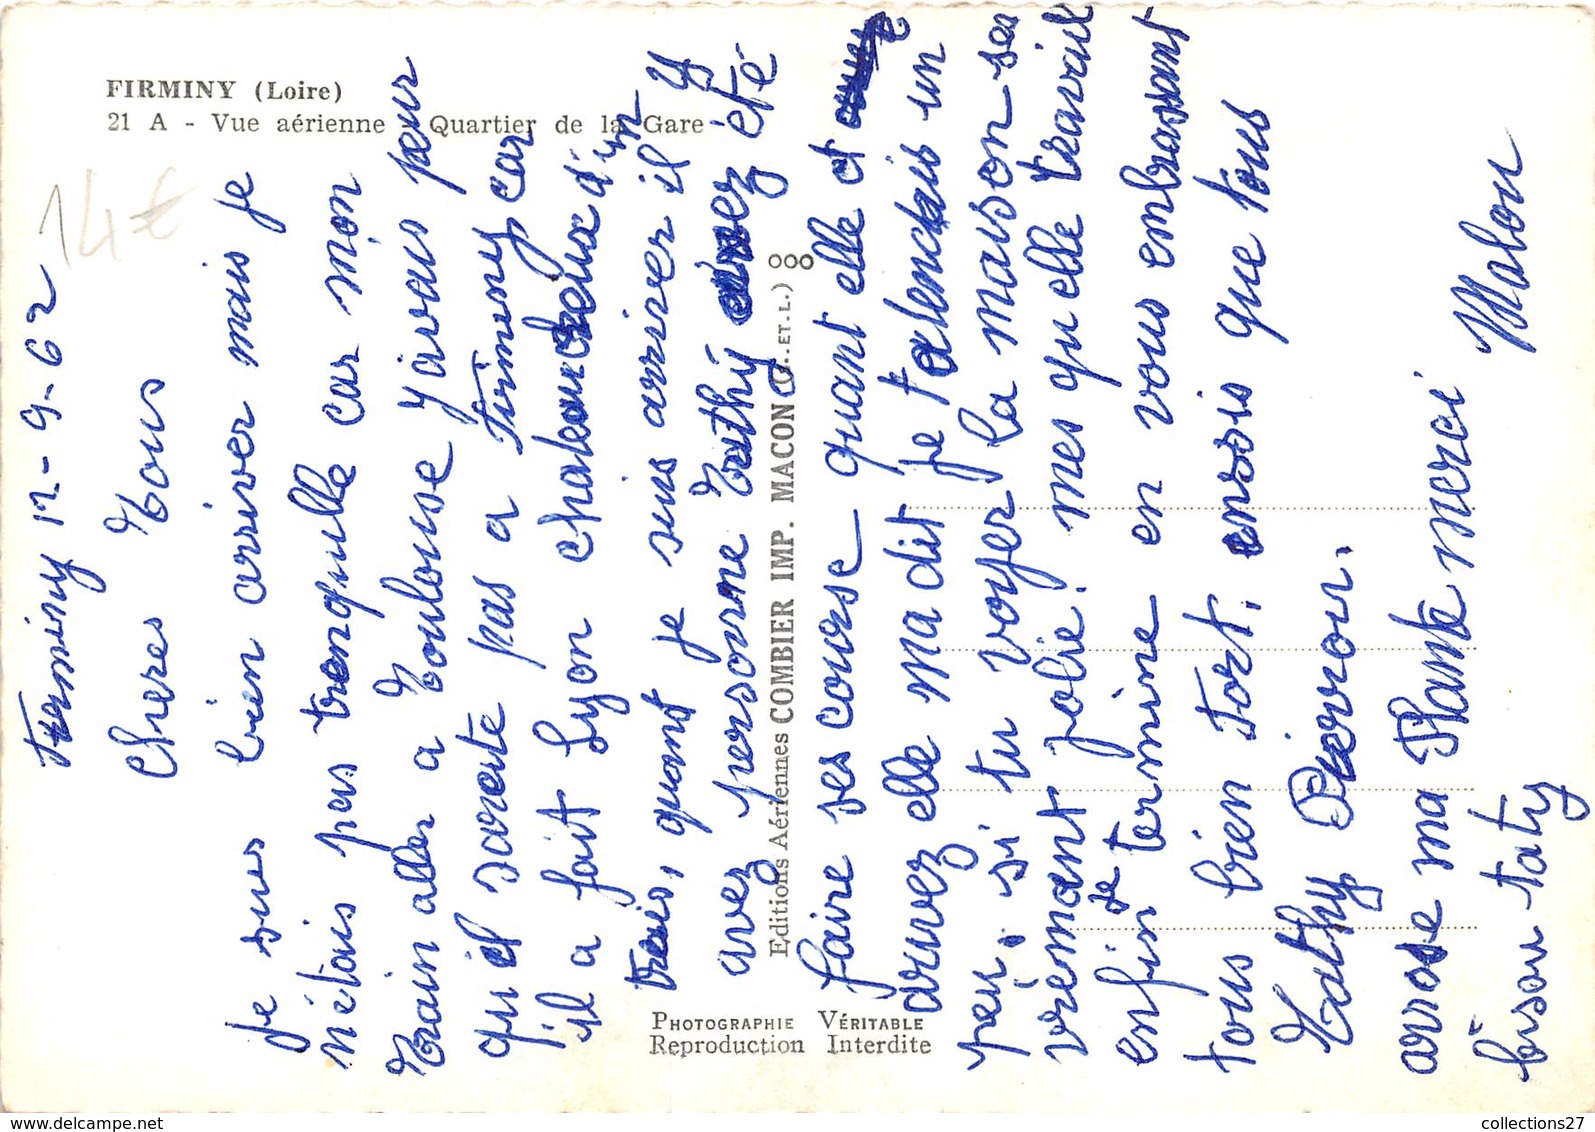 FIRMINY (Loire)
21 A - Vue aérienne - Quartier de la Gare
14€
Firminy 12-9-62
Cheres Tous
je suis bien arriver mais je
n'étais pas tranquille car mon
train aller a Toulouse j'avais peur
qu'il sarete pas a Firminy car
il a fait Lyon chateaucreux d'un
trais, quant je suis arriver il y
avez personne Cathy avez été
faire ses course quant elle et
arrivez elle ma dit je t'atendais un
peu, si tu voyer la maison ses
vrement jolie. mes qu elle travail
enfin je termine en vous embrassant
tous bien Fort. ensois que tous
Cathy Pierrou.
arrose ma Plante merci
bisou taty Malou
Editions Aériennes COMBIER IMP. MACON (S.-ET-L.)
PHOTOGRAPHIE VÉRITABLE
Reproduction Interdite
collections27